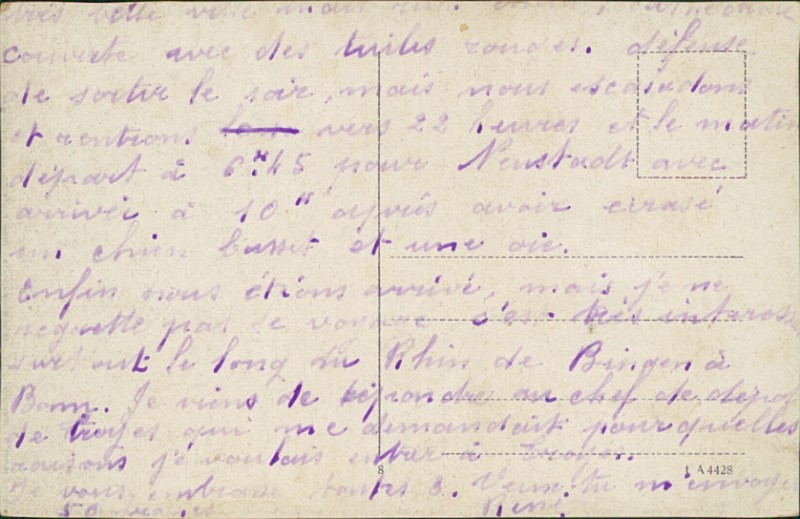 très belle ville mais
couverte avec des tuiles rondes. défense
de sortir le soir, mais nous escaladons
et rentrions vers 22 heures et le matin
départ à 6.H45 pour Neustadt avec
arrivée à 10 H après avoir écrasé
un chien basset et une oie.
Enfin nous étions arrivé, mais je ne
regrette pas le voyage c'est très interes
surtout le long du Rhin de Bingen à
Bonn. Je viens de répondre au chef de dépot
de troyes qui me demandait pour quelles
raisons j'e voulais entrer à Troyes.
Je vous embrasse toutes 3. Veux-tu m'envoye
50 René
8 A 4428